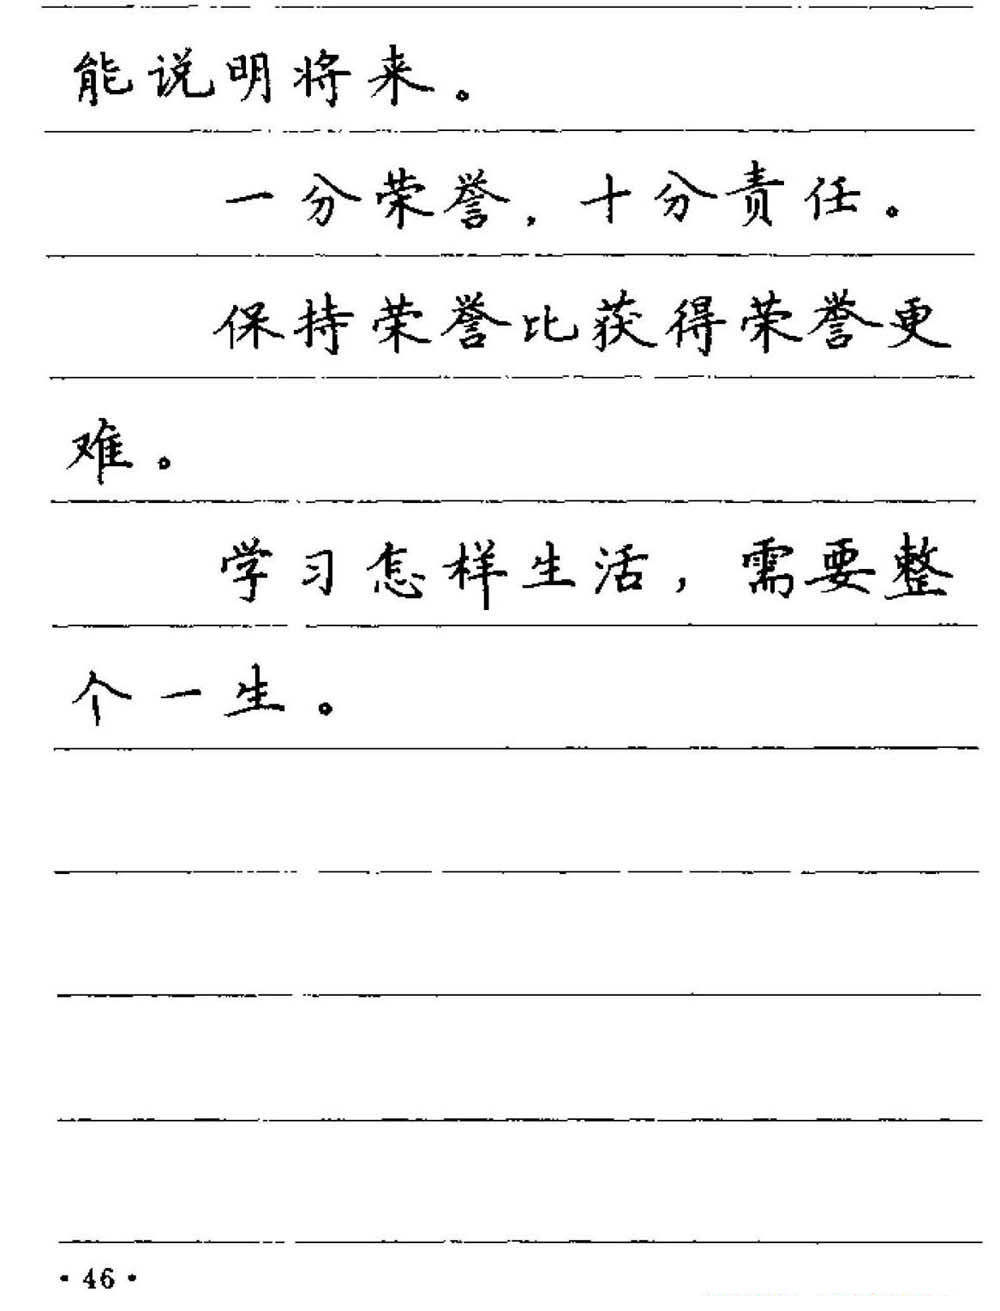 能说明将来。
一分荣誉，十分责任。
保持荣誉比获得荣誉更
难。
学习怎样生活，需要整
个一生。
·46·